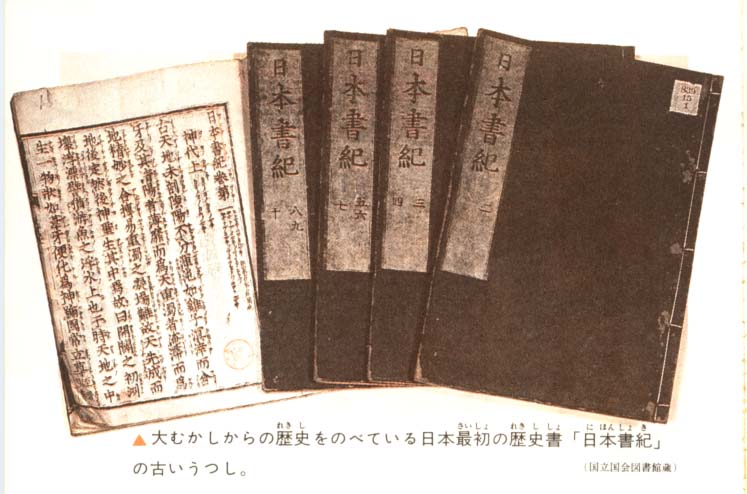 日本書紀 二
日本書紀 三 四
日本書紀 五六 七
日本書紀 八九 十
839
15
1
日本書紀巻第一
神代上
古天地未剖陰陽不分渾沌如雞子溟涬而含
牙及其清陽者薄靡而爲天重濁者淹滯而爲
地精妙之合搏易重濁之凝場難故天先成而
地後定然後神聖生其中焉故曰開闢之初洲
壤浮漂譬猶游魚之浮水上也于時天地之中
生一物狀如葦牙便化爲神號國常立尊
▲大むかしからの歴史をのべている日本最初の歴史書「日本書紀」
の古いうつし。
(国立国会図書館蔵)